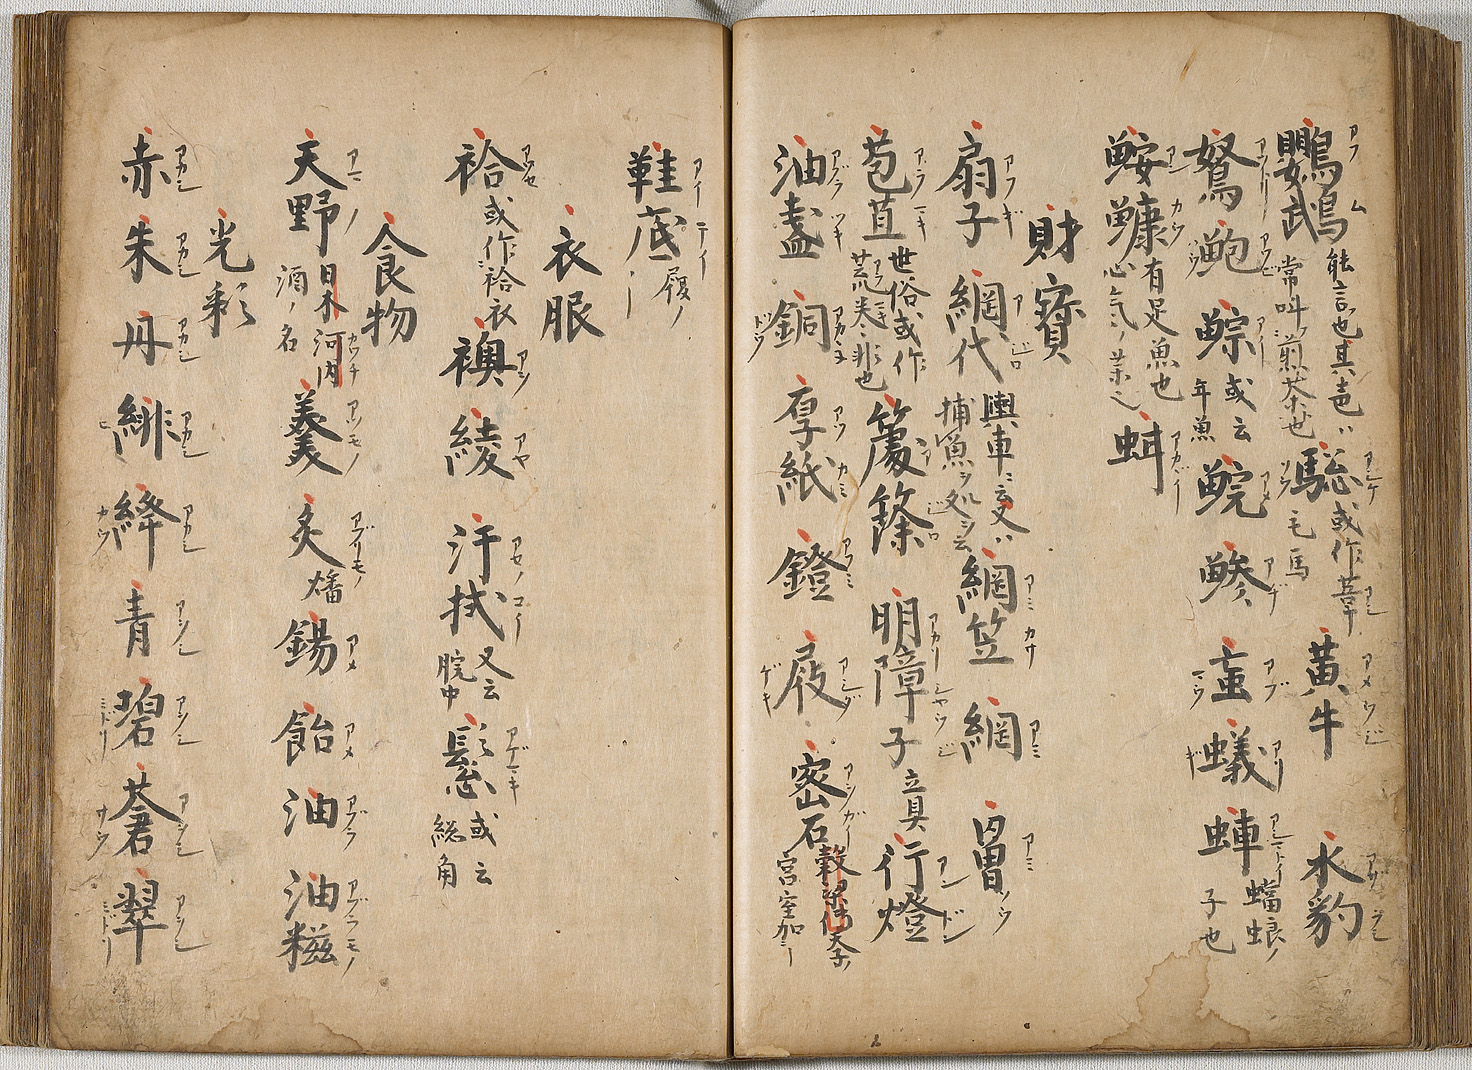 鸚鵡 アフム 能言也其色ハ常叫煎茶也 騘 アシケ 或作葦毛馬 黄牛 アメウジ 水豹 アザラシ
鴑 アヅトリ 鮑 アワビ 鯮 アイ 或云年魚 鯇 アメ 鯵 アヂ 䖟 アブ マウ 蟻 アリ ギ 蟬 蟷蜋ノ子也
鮟鱇 アンカウ 有足魚也 心氣ノ薬也 蚶 アカガイ
財寳
扇子 アフギ 網代 アジロ 輿車ニ云又ハ捕魚ヲルヲシ云 網笠 アミカサ 網 アミ 冑
苞苴 アラマキ 世俗或作荒巻非也 籧篨 アジロ 明障子 アカリシヤウジ 立具 行燈 アンドン
油盞 アブラツキ 銅 アカヾネ ドウ 厚紙 アツカミ 鐙 アブミ 屐 アシダ ゲキ 密石 宮室加
鞋底 アイテイ 履ノ
衣服
袷 アワセ 或作袷衣 襖 アヲシ 綾 アヤ 汗拭 アセノコイ 又云腕巾 鬆 アゲマキ 或云総角
食物
天野 アマノ 日本河内 カウチ 酒ノ名 羹 アツモノ 炙 アブリモノ 燔 錫 アメ 飴 アメ 油 アブラ 油糍 アブラモノ
光彩
赤 アカシ 朱 アカシ 丹 アカシ 緋 アカシ ヒ 絳 アカシ カウ 青 アヲシ 碧 アヲシ ミドリ 蒼 アヲシ サウ 翠 アヲシ ミドリ